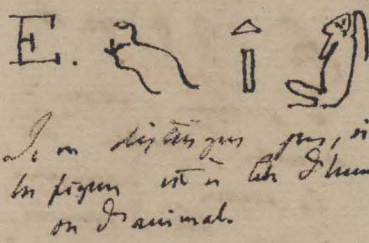 E.
Je ne distingue pas, si
la figure est à tête d'hom
ou d'animal.